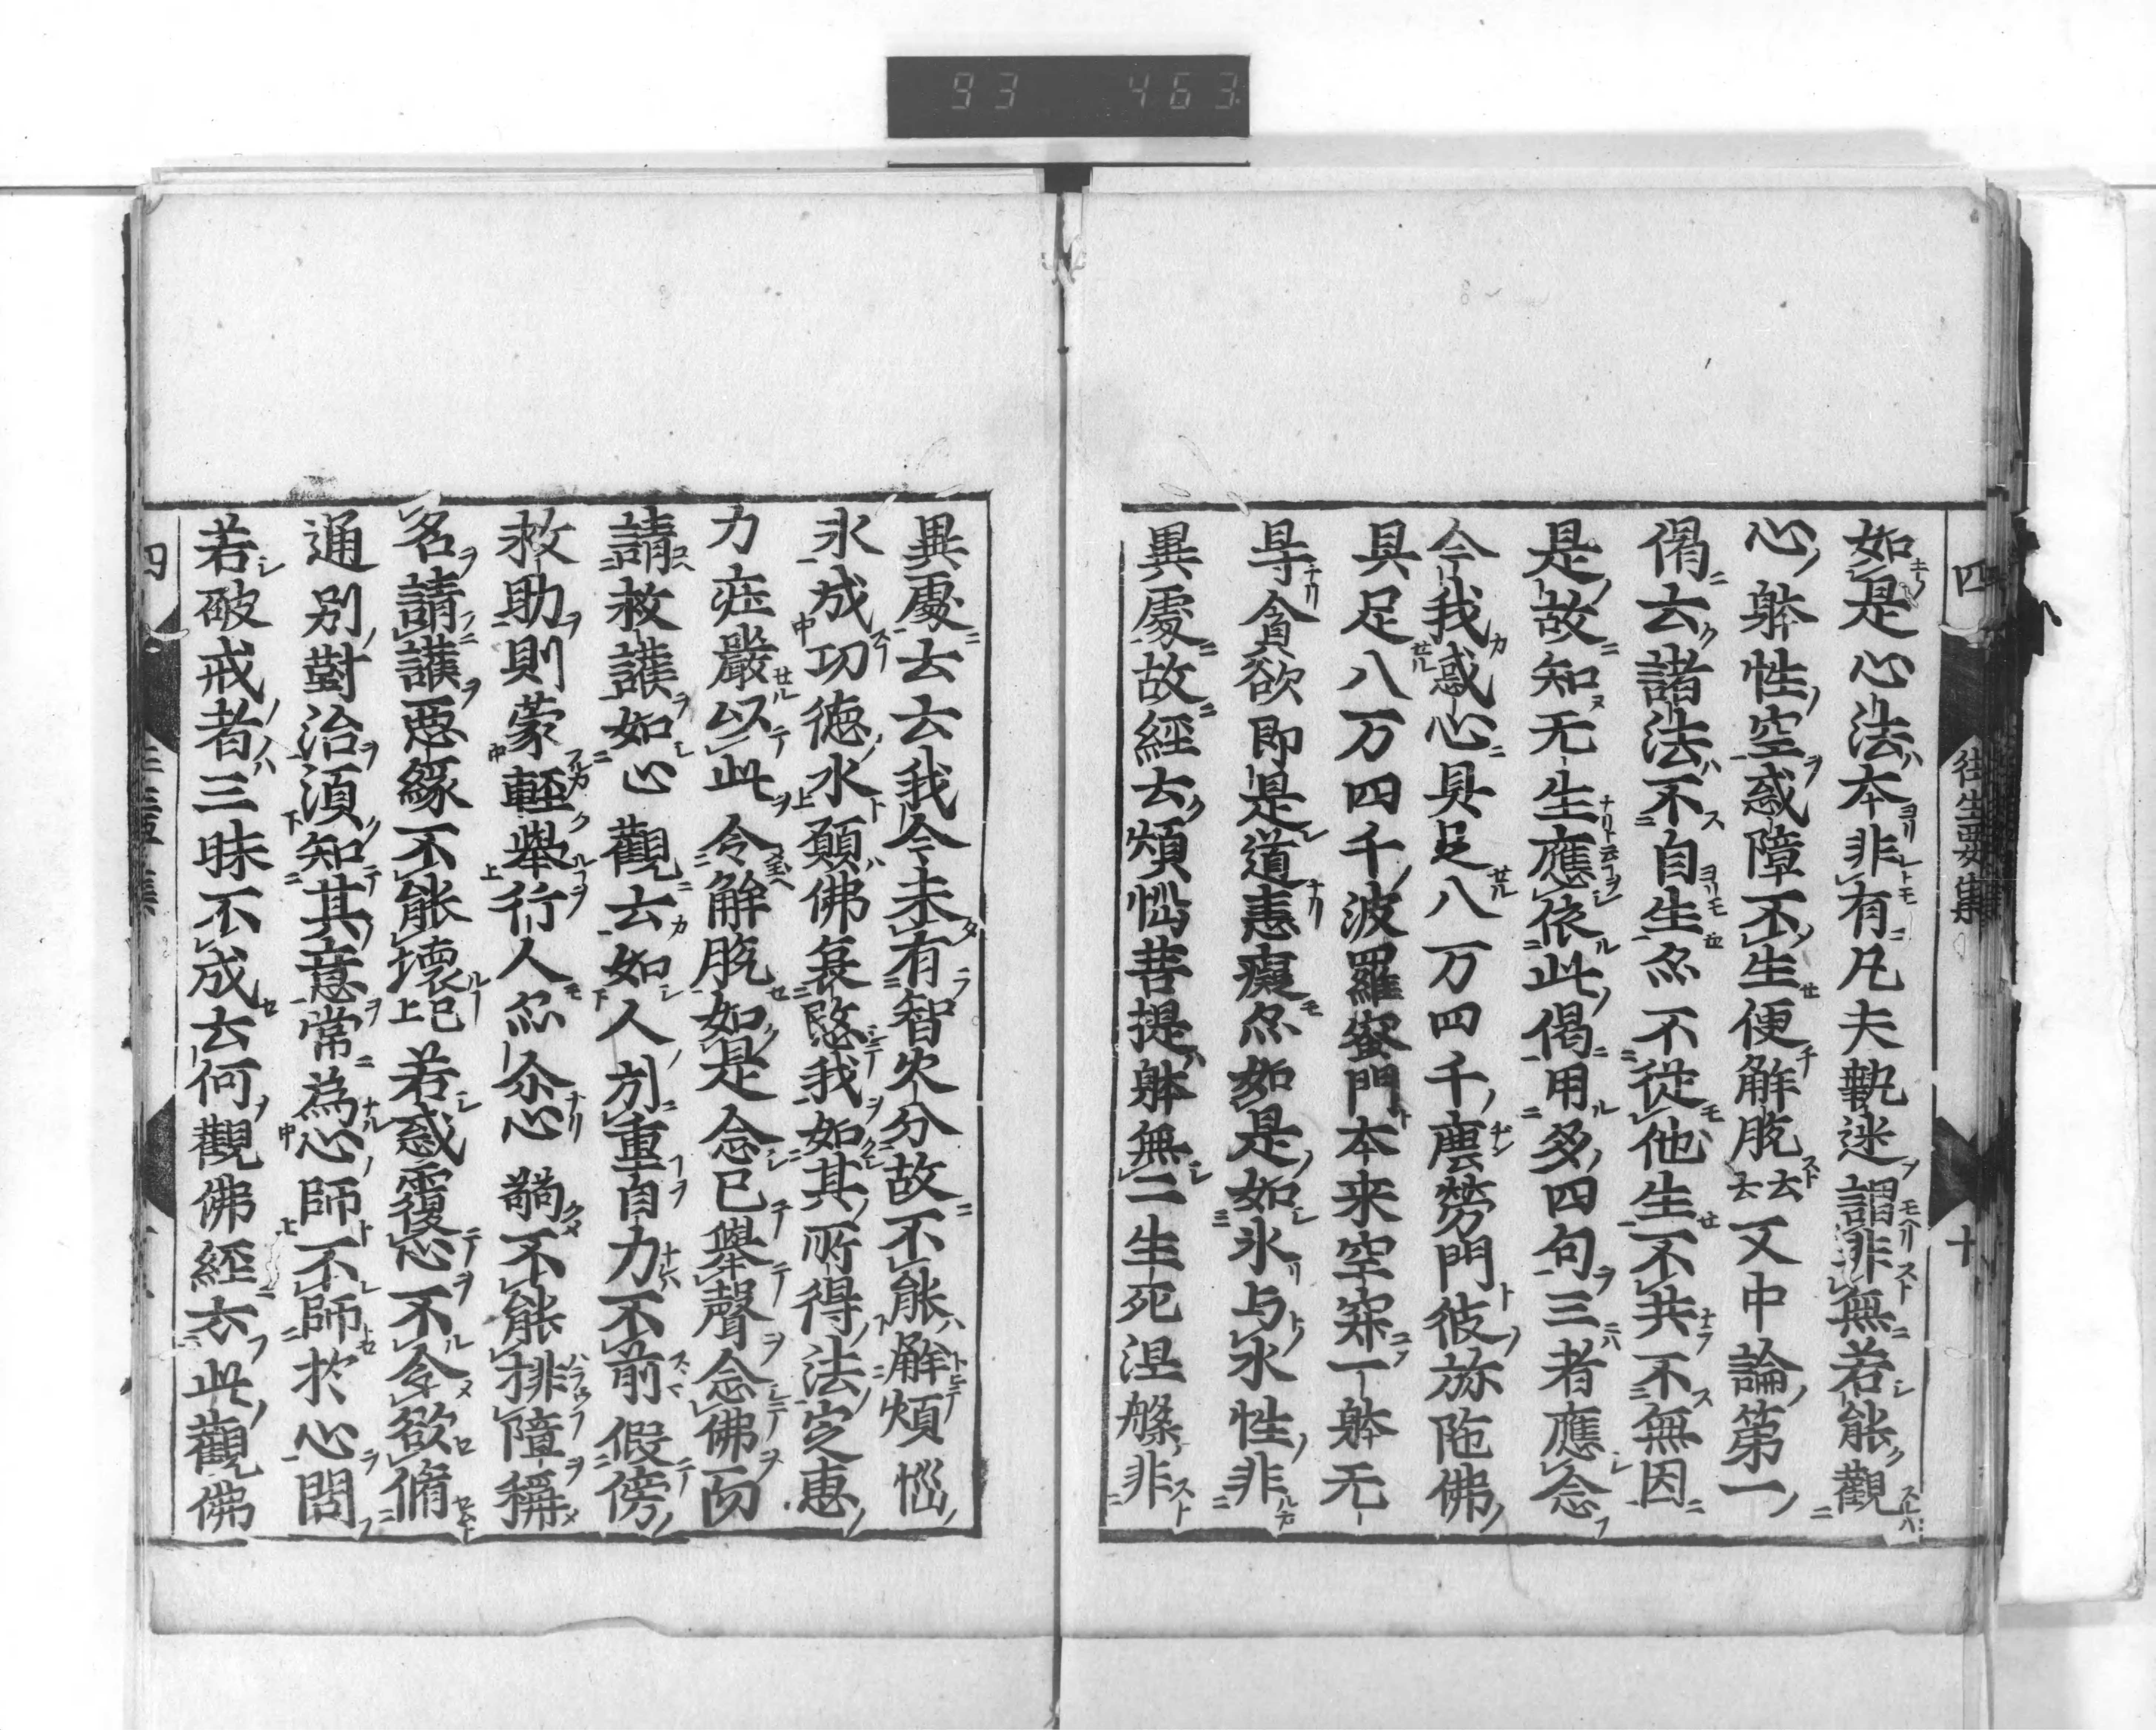 93 463
四
往生要集
十
如是心法本非有凡夫執迷謂非無若能觀
心躰性空惑障不生便解脱云云又中論第一
偈云諸法不自生亦不從他生不共不無因
是故知无生應依此偈用多四句三者應念
今我惑心具足八万四千塵勞門彼弥陁佛
具足八万四千波羅蜜門本来空寂一躰无
㝵貪欲即是道恚癡亦如是如氷与水性非
異處故經云煩惱菩提躰無二生死涅槃非
異處云云我今未有智火分故不能解煩惱
氷成功徳水願佛哀愍我如其所得法定恵
力荘嚴以此令解脱如是念已舉聲念佛而
請救護如心觀云如人引重自力不前假傍
救助則蒙輕舉行人亦尒心弱不能排障稱
名請護悪緣不能壞已上若惑覆心不令欲脩
通別對治湏知其意常為心師不師於心問
若破戒者三昧不成云何觀佛經亦此觀佛
四